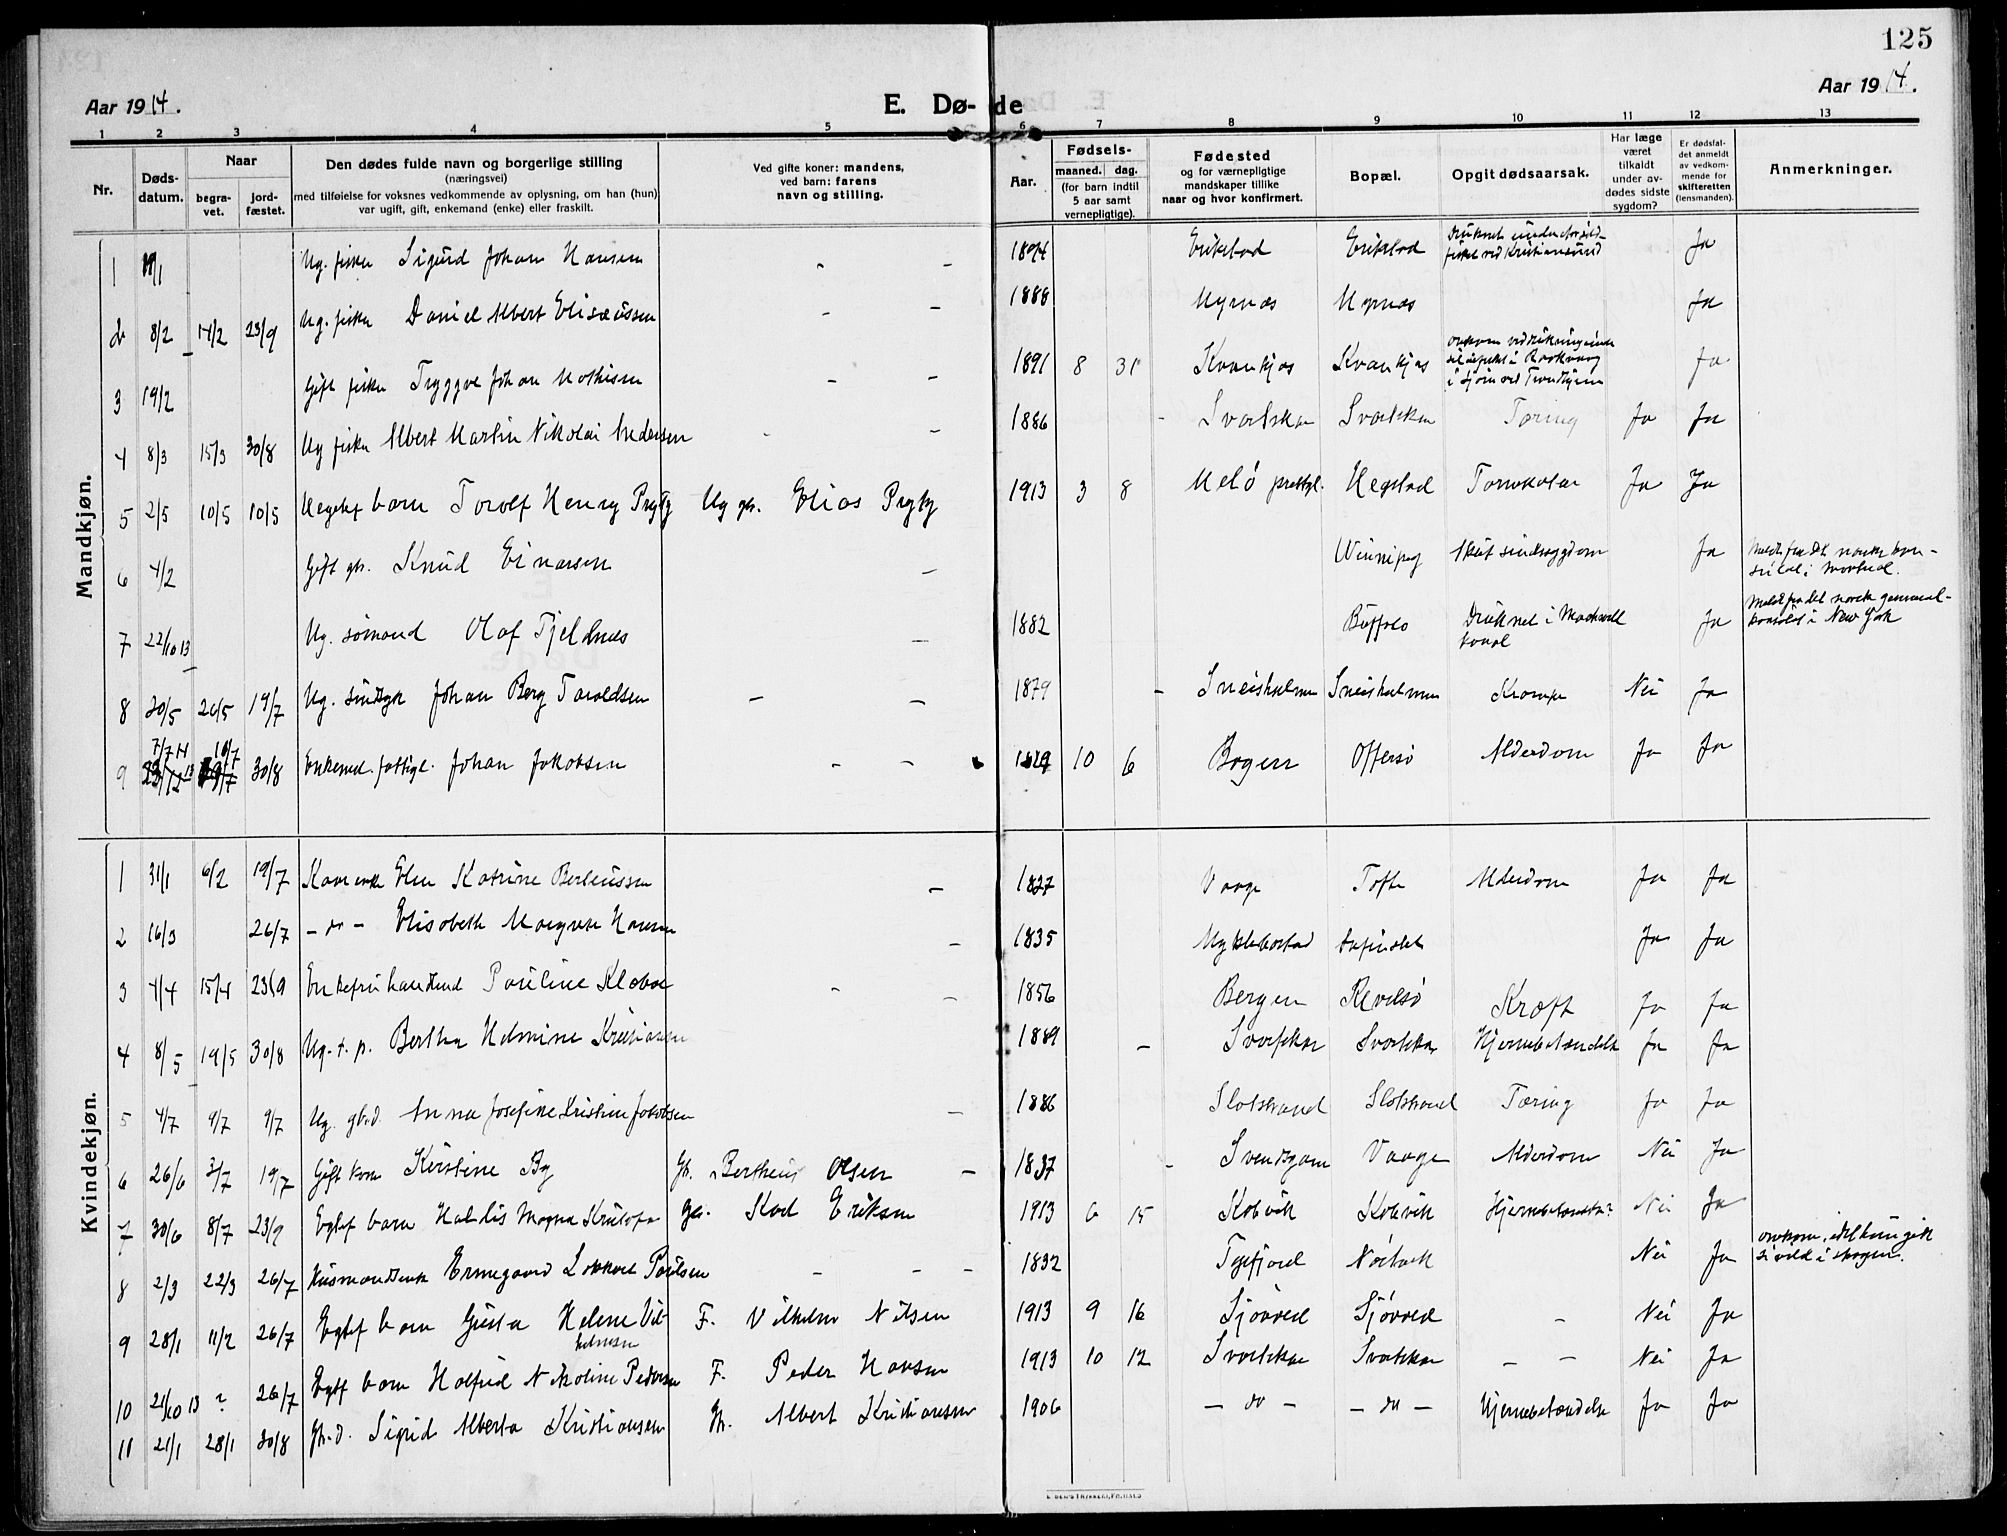 125
Aar 1914.
E. Dø- de
Aar 1914.
1 2 3 4 5 6 7 8 9 10 11 12 13
Nr.
Døds-
datum.
Naar
begra-
vet.
jord-
fæstet.
Den dødes fulde navn og borgerlige stilling
(næringsvei)
med tilføielse for voksnes vedkommende av oplysning, om han (hun)
var ugift, gift, enkemand (enke) eller fraskilt.
Ved gifte koner: mandens,
ved barn: farens
navn og stilling.
Aar.
Fødsels-
maaned. dag.
(for barn indtil
5 aar samt
vernepligtige).
Fødested
og for værnepligtige
mandskaper tillike
naar og hvor konfirmert.
Bopæl.
Opgit dødsaarsak.
Har læge
været
tilkaldt
under av-
dødes sidste
sygdom?
Er dødsfal-
det anmeldt
av vedkom-
mende for
skifteretten
(lensmanden).
Anmerkninger.
Mandkjøn.
1 Ug. fisker Sigurd Johan Hansen - - 1894 Erikstad Erikstad Druknet under storsild- fisket ved Kristiansund Ja
2 8/2 14/2 23/9 Ug. fisker Daniel Albert Eliseussen - - 1888 Myrnæs Myrnæs Ja
3 19/2 Gift fisker Tryggve Johan Mathisen - - 1891 8 31 Kvankjos Kvankjos omkom ved drukning under sildefisket i i Sjørn ved Trondhjem Ja
4 8/3 15/3 30/8 Ug fisker Albert Martin Nikolai Andersen - - 1886 - Svartskar Svartskar Tæring Ja Ja
5 2/5 10/5 10/5 Uegtef barn Torolf Henry Prytz Ug gb. Elias Prytz 1913 3 8 Melø prestgj. Hegstad Tarmkatar Ja Ja
6 4/2 Gift gb. Knud Einarsen - Winnipeg Akut sindssygdom Ja Meldt fra Det norske kon- sulat i Montreal.
7 22/10 13 Ug. sømand Olaf Tjeldnæs - 1882 Buffalo Druknet i kanal Ja Meldt fra det norske general- konsulat i New York
8 20/5 26/5 19/7 Ug. sindssyk Johan Berg Toroldsen - - 1879 - Sneisholmen Sneisholmen Krampe Nei Ja
9 7/7 14 30/8 Enkemd. fattigl. Johan Jakobsen - - 1829 10 6 Bogen Offersø Alderdom Ja Ja
Kvindekjøn.
1 31/1 6/2 19/7 Kaarenke Elen Katrine Berteussen - 1827 Vaage Tofte Alderdom Ja Ja
2 16/3 26/7 - do - Elisabeth Margrete Hansen - 1835 Myklebostad Ja Ja
3 4/4 15/4 23/9 Enkefru Pauline Klæboe - - 1856 Bergen Revelsø Kræft Ja Ja
4 8/5 19/5 30/8 Ug. t. p. Bertha Helmine Kristiansen 1889 - Svartskar Svartskar Hjernebetændelse Ja Ja
5 4/7 9/7 9/7 Ug. gb.d. Anna Josefine Kristine Jakobsen - 1886 Slotstrand Slotstrand Tæring Ja Ja
6 26/6 3/7 19/7 Gift kone Kirstine By Gb. Bertheus Olsen - 1837 - Svendsgam Vaage Alderdom Nei Ja
7 30/6 8/7 23/9 Egtef barn Haldis Magna gb. Kad Eriksen 1913 6 15 Kobvik Kobvik Hjernebetændelse? Nei Ja
8 2/3 22/3 26/7 Husmandsenke Ermegaard Lokkert Paulsen - - - 1832 Tysfjord Nordvik Nei Ja omkom, idet hun gik sig vild i skogen.
9 28/1 11/2 26/7 Egtef barn Gusta Helene Vil- helmsen F. Vilhelm Nilsen 1913 9 16 Sjøvold Sjøvold - Nei Ja
10 21/10 13 ? 26/7 Egtf barn Halfrid Nikoline Pedersen F. Peder Hansen 1913 10 12 Svartskar Svartskar - - Nei Ja
11 21/1 28/1 30/8 Gb.d. Sigrid Alberta Kristiansen Gb. Albert Kristiansen 1906 - do - - do - Hjernebetændelse Ja Ja